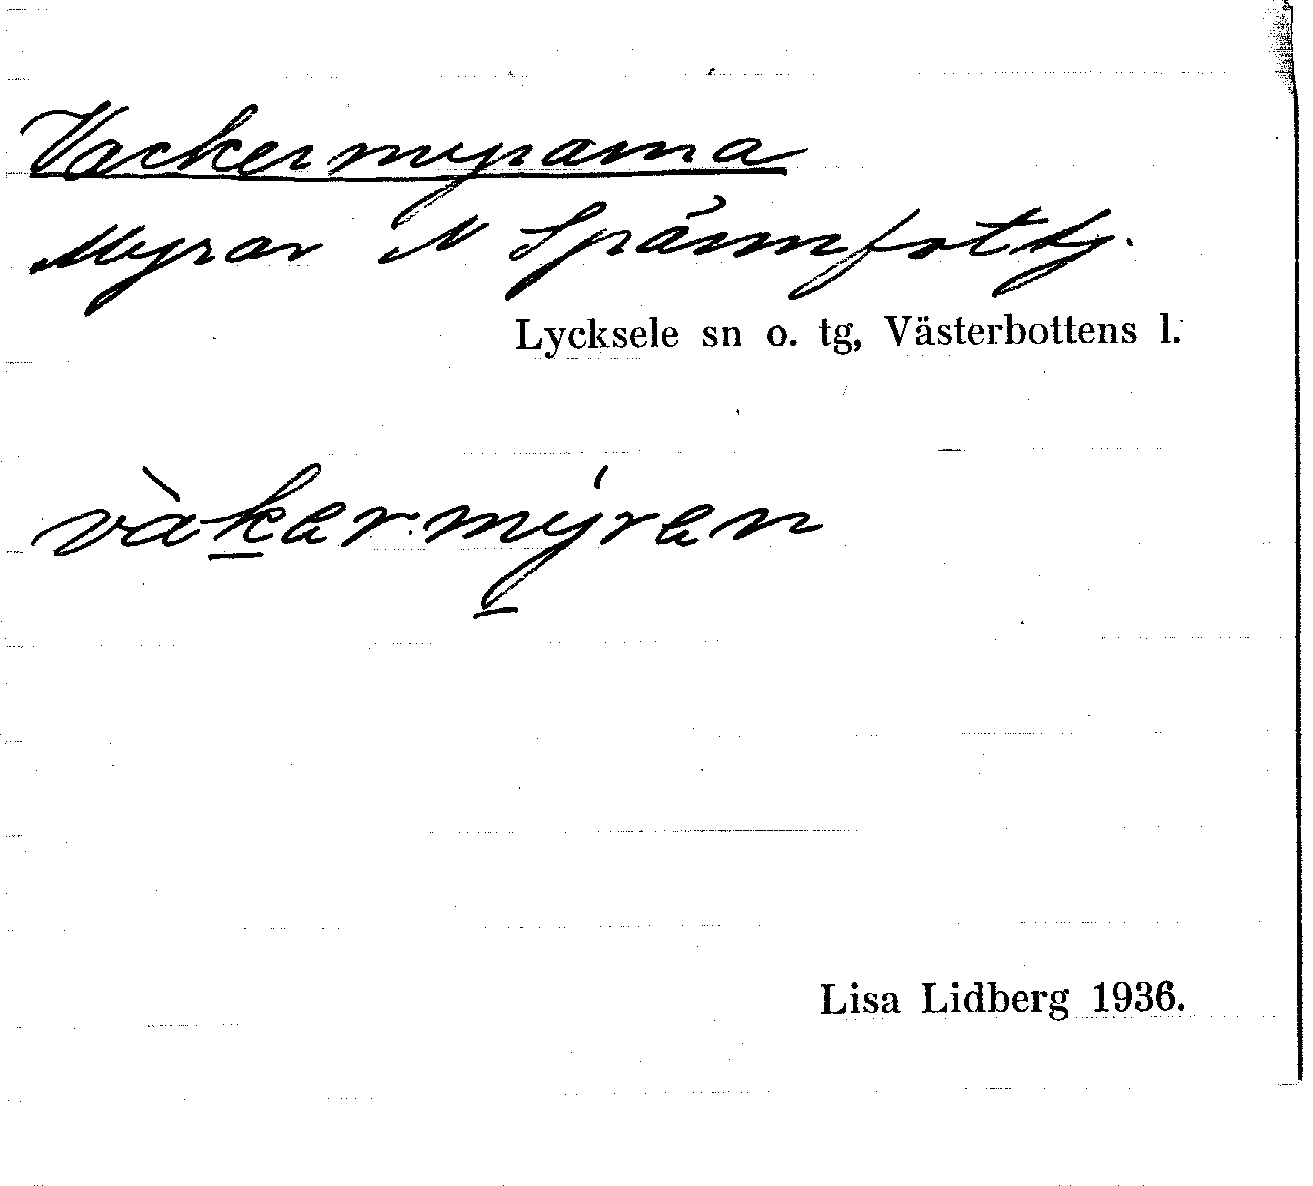 Vackermyrarna
Myrar N Spännfottj.
Lycksele sn o. tg, Västerbottens l.
vàkermýran
Lisa Lidberg 1936.